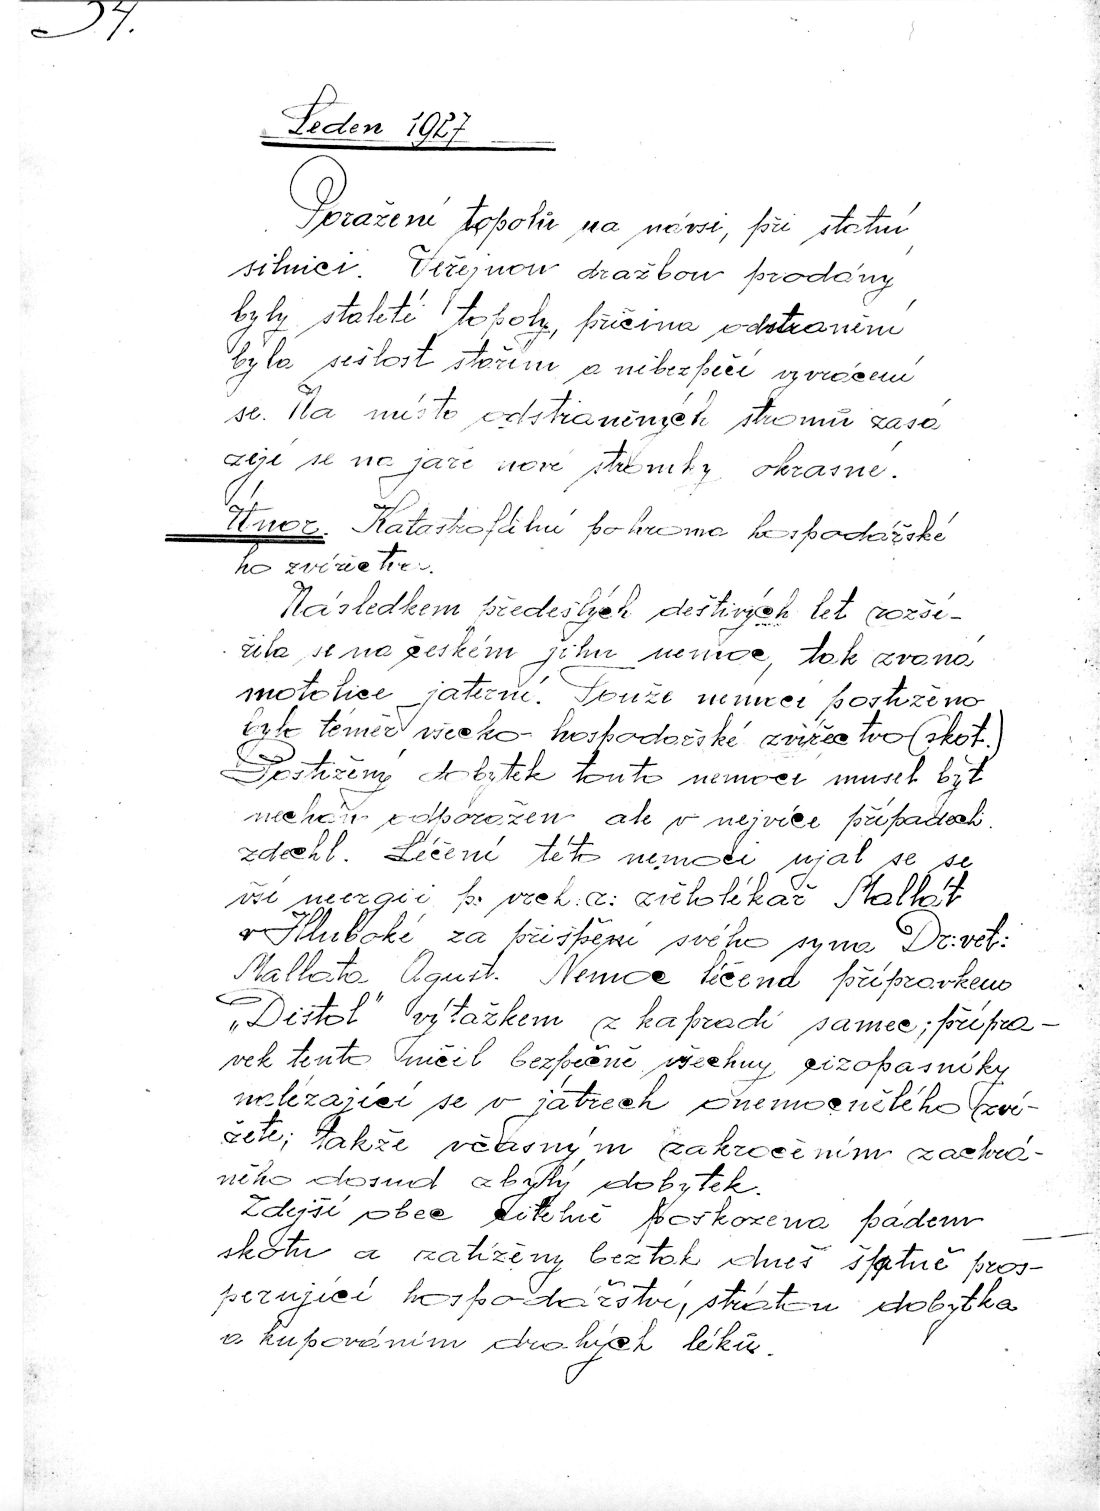 34.
Leden 1927
Poražení topolů na návsi, při státní
silnici. Veřejnou dražbou prodány
byly staleté topoly, příčina odstranění
byla sešlost stářím a nebezpečí vyvrácení
se. Na místo odstraněných stromů zasá
zejí se na jaře nové stromky okrasné.
Únor. Katastrofální pohroma hospodářské
ho zvířectva.
Následkem předešlých deštivých let rozší-
řila se na českém jihu nemoc, tak zvaná
motolice jaterní. Touže nemocí postiženo
bylo téměř všecko hospodářské zvířectvo (skot.)
Postižený dobytek touto nemocí musel být
nechán odporažen ale v nejvíce případech
zdechl. Léčení této nemoci ujal se se
vší neergií p. vrch. z: zvěrolékař Mallát
v Hluboké za přispění svého syna Dr: vet:
Malláta Agust. Nemoc léčena přípravkem
„Distol" výtažkem z kapradí samec; přípra-
vek tento ničil bezpečně všechny cizopasníky
nalézající se v játrech onemocnělého zví-
řete; takže včasným zakročením zachrá-
něno dosud zbylý dobytek.
Zdejší obec citelně poškozena pádem
skotu a zatíženy beztak dneš špatně pros-
perující hospodářství, ztrátou dobytka
a kupováním drahých léků.